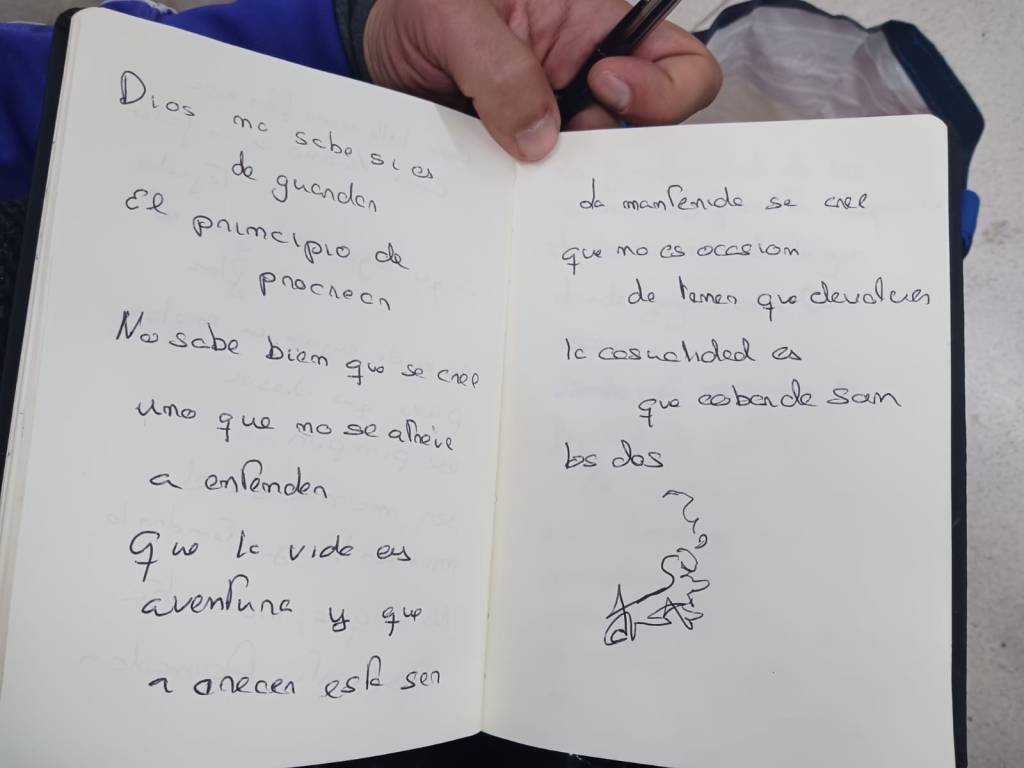 Dios no sabe si es
de guardar
El principio de
procrear
No sabe bien que se cree
uno que no se atreve
a entender
Que la vida es
aventura y que
a crecer está ser
de mantenida se cree
que no es ocasion
de temer que devolver
la casualidad es
que cobarde son
los dos